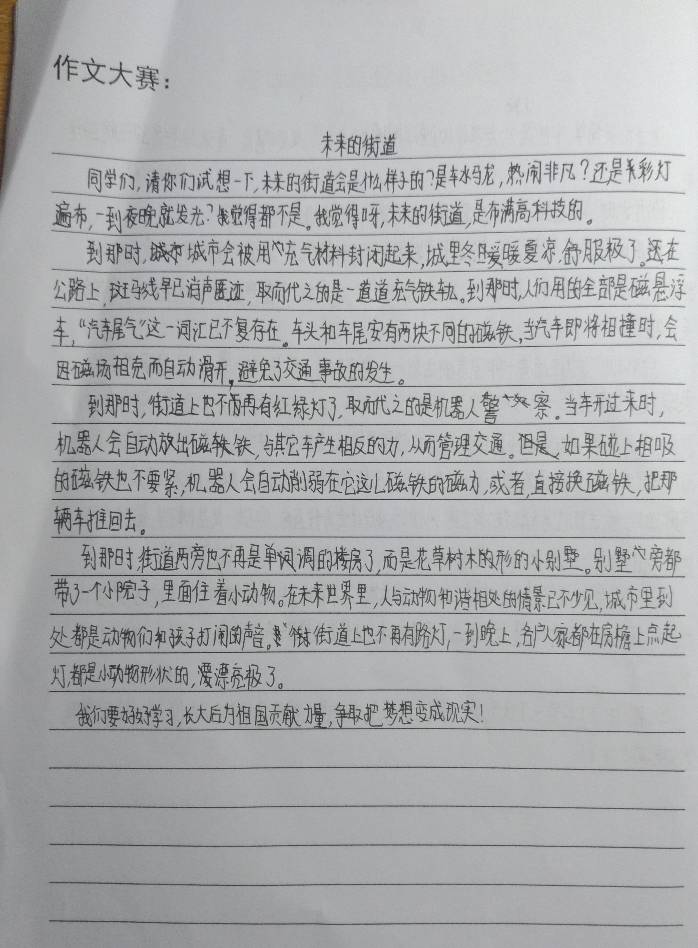 作文大赛：
未来的街道
同学们，请你们试想一下，未来的街道会是什么样子的？是车水马龙，热闹非凡？还是彩灯
遍布，一到夜晚就发光？我觉得都不是。我觉得呀，未来的街道，是布满高科技的。
到那时，城市会被用充气材料封闭起来，城里冬暖夏凉，舒服极了。还在
公路上，斑马线早已消声匿迹，取而代之的是一道道充气铁轨。到那时，人们用的全部是磁悬浮
车，“汽车尾气”这一词汇已不复存在。车头和车尾安有两块不同的磁铁，当汽车即将相撞时，会
因磁场相克而自动滑开，避免了交通事故的发生。
到那时，街道上也不再有红绿灯了，取而代之的是机器人警察。当车开过来时，
机器人会自动放出磁铁，与其它车产生相反的力，从而管理交通。但是，如果碰上相吸
的磁铁也不要紧，机器人会自动削弱在它这儿磁铁的磁力，或者，直接换磁铁，把那
辆车推回去。
到那时，街道两旁也不再是单调的楼房了，而是花草树木的形的小别墅。别墅旁都
带了一个小院子，里面住着小动物。在未来世界里，人与动物和谐相处的情景已不少见，城市里到
处都是动物们和孩子打闹的声音。街道上也不再有路灯，一到晚上，各户人家都在房檐上点起
灯，都是小动物形状的，漂亮极了。
我们要好好学习，长大后为祖国贡献力量，争取把梦想变成现实！